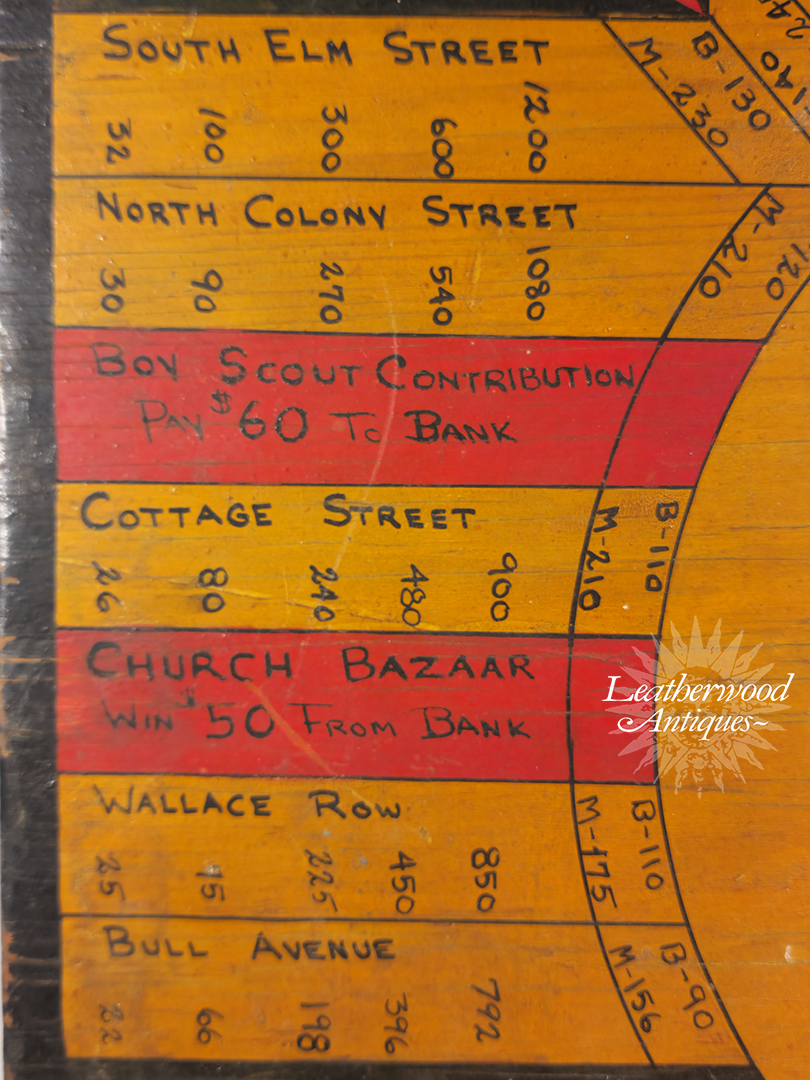 SOUTH ELM STREET
32 100 300 600 1200
M-230
B-130
140
NORTH COLONY STREET
30 90 270 540 1080
M-210
120
BOY SCOUT CONTRIBUTION
PAY $60 TO BANK
COTTAGE STREET
26 80 240 480 900
M-210
B-110
CHURCH BAZAAR
WIN $50 FROM BANK
Leatherwood
Antiques~
WALLACE ROW
25 75 225 450 850
M-175
B-110
BULL AVENUE
22 66 198 396 792
M-156
B-90